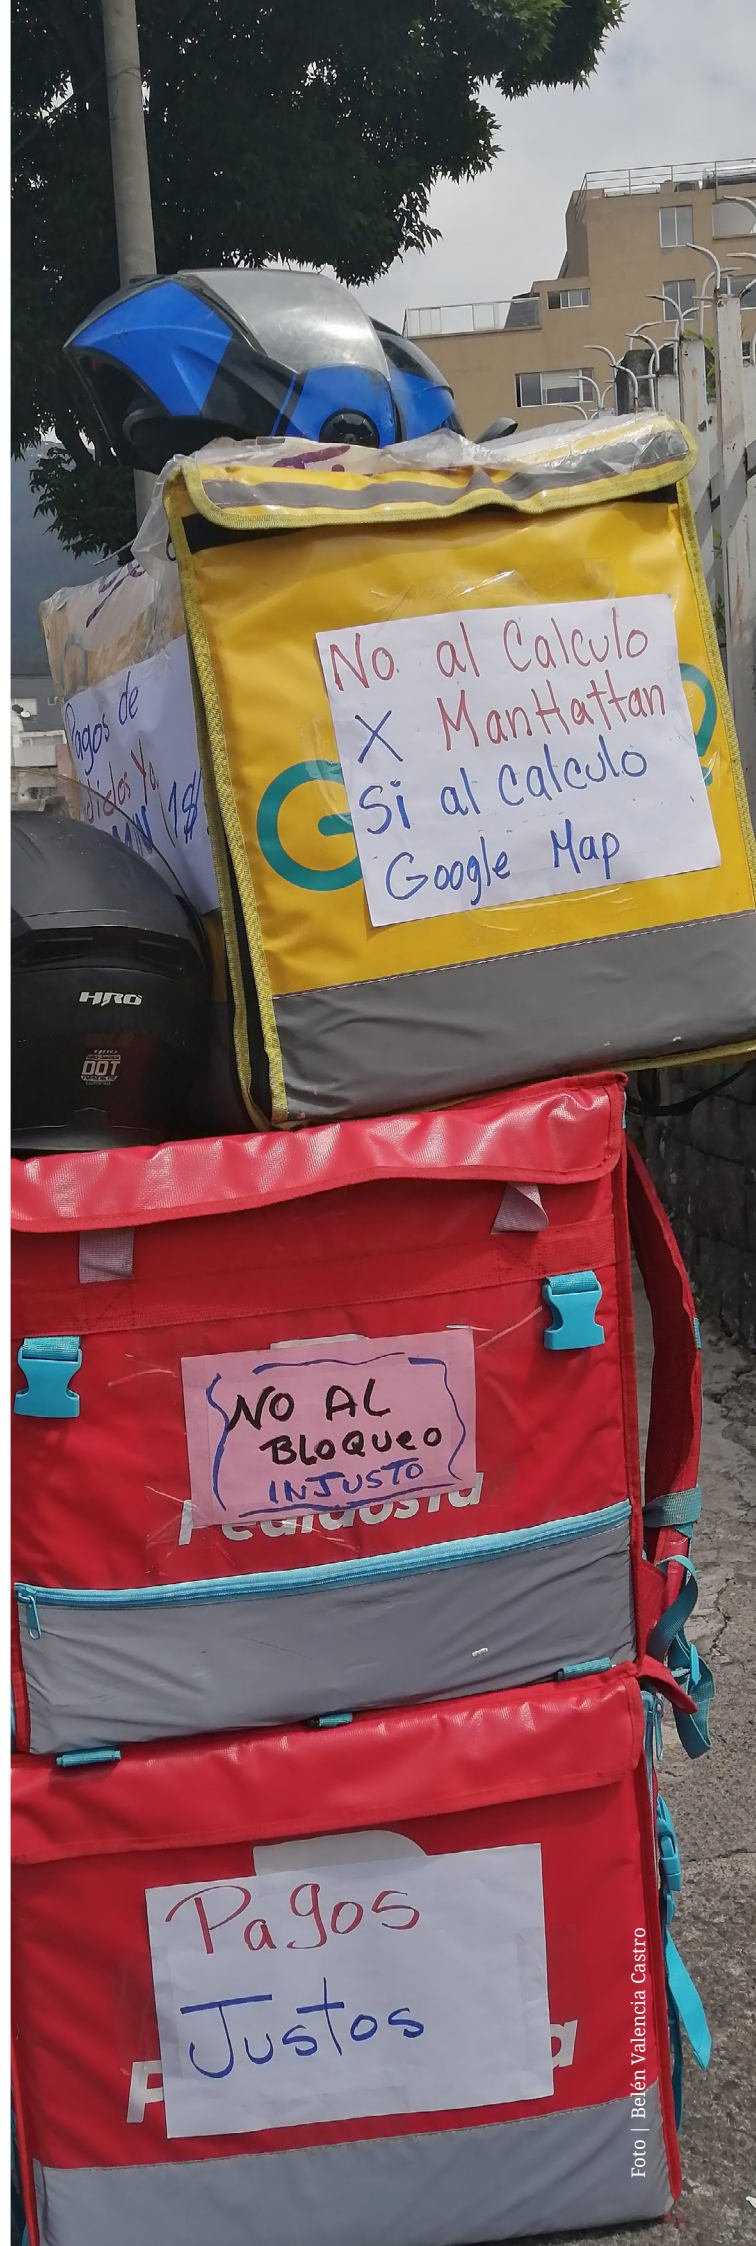 No al Calculo
X ManHattan
Si al Calculo
Google Map
Pagos de
Ya
(1$
HRO
DOT
NO AL
BLOQUeO
INJUSTO
PedidosYa
Pagos
Justos
Foto | Belén Valencia Castro